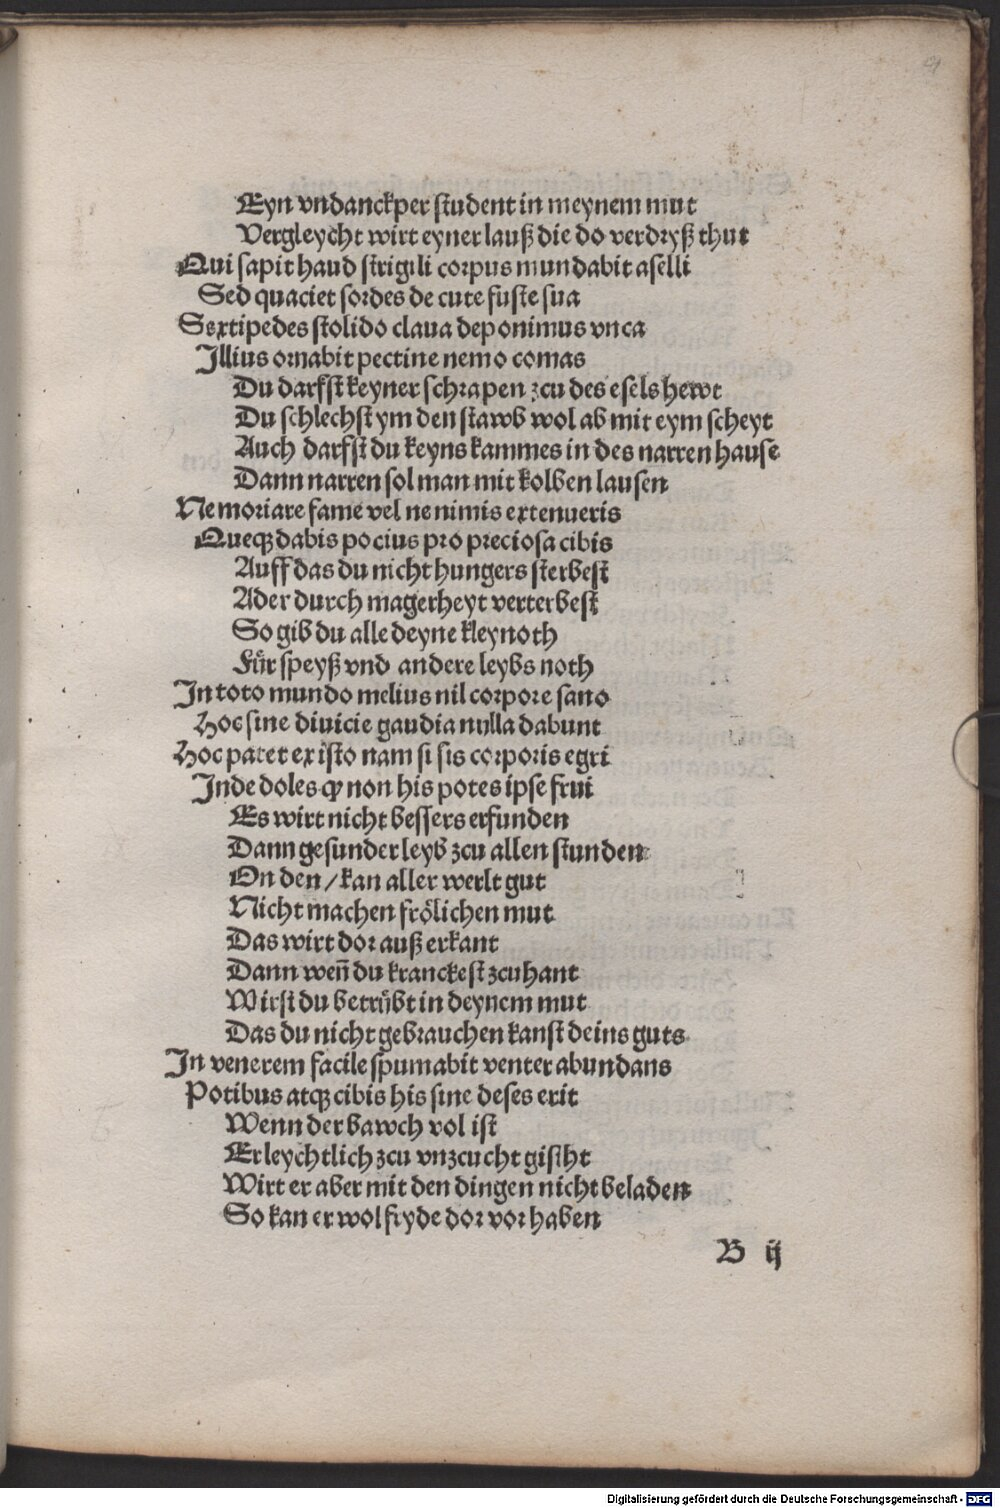 Eyn vndanckper student in meynem mut
Vergleycht wirt eyner lauß die do verdryß thut
Qui sapit haud strigili corpus mundabit aselli
Sed quaciet sordes de cute fuste sua
Sextipedes stolido claua deponimus vnca
Illius ornabit pectine nemo comas
Du darfst keyner schrapen zcu des esels hewt
Du schlechst ym den stawb wol ab mit eym scheyt
Auch darfst du keyns kammes in des narren hause
Dann narren sol man mit kolben lausen
Ne moriare fame vel ne nimis extenueris
Queqꝫ dabis pocius pro preciosa cibis
Auff das du nicht hungers sterbest
Ader durch magerheyt verterbest
So gib du alle deyne kleynoth
Für speyß vnd andere leybs noth
In toto mundo melius nil corpore sano
Hoc sine diuicie gaudia nulla dabunt
Hoc patet ex isto nam si sis corporis egri
Inde doles ꝙ non his potes ipse frui
Es wirt nicht bessers erfunden
Dann gesunder leyb zcu allen stunden
On den / kan aller werlt gut
Nicht machen frölichen mut
Das wirt dor auß erkant
Dann weñ du kranckest zcuhant
Wirst du betrübt in deynem mut
Das du nicht gebrauchen kanst deins guts
In venerem facile spumabit venter abundans
Potibus atqꝫ cibis his sine deses erit
Wenn der bawch vol ist
Er leychtlich zcu vnzcucht gisiht
Wirt er aber mit den dingen nicht beladen
So kan er wol fryde dor vor haben
B ij
Digitalisierung gefördert durch die Deutsche Forschungsgemeinschaft - DFG